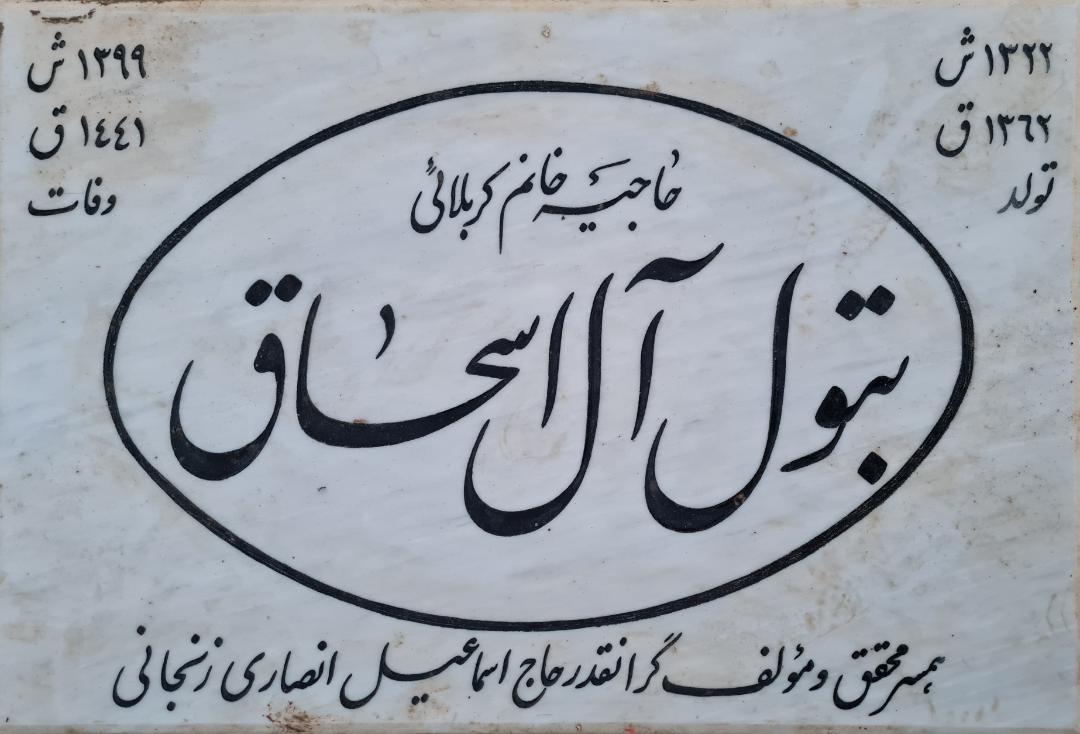 ۱۳۲۲ ش
۱۳٦۲ ق
تولد
۱۳۹۹ ش
۱٤٤۱ ق
وفات
حاجیه خانم کربلائی
بتول آل اسحاق
همسر محقق و مؤلف گرانقدر حاج اسماعیل انصاری زنجانی